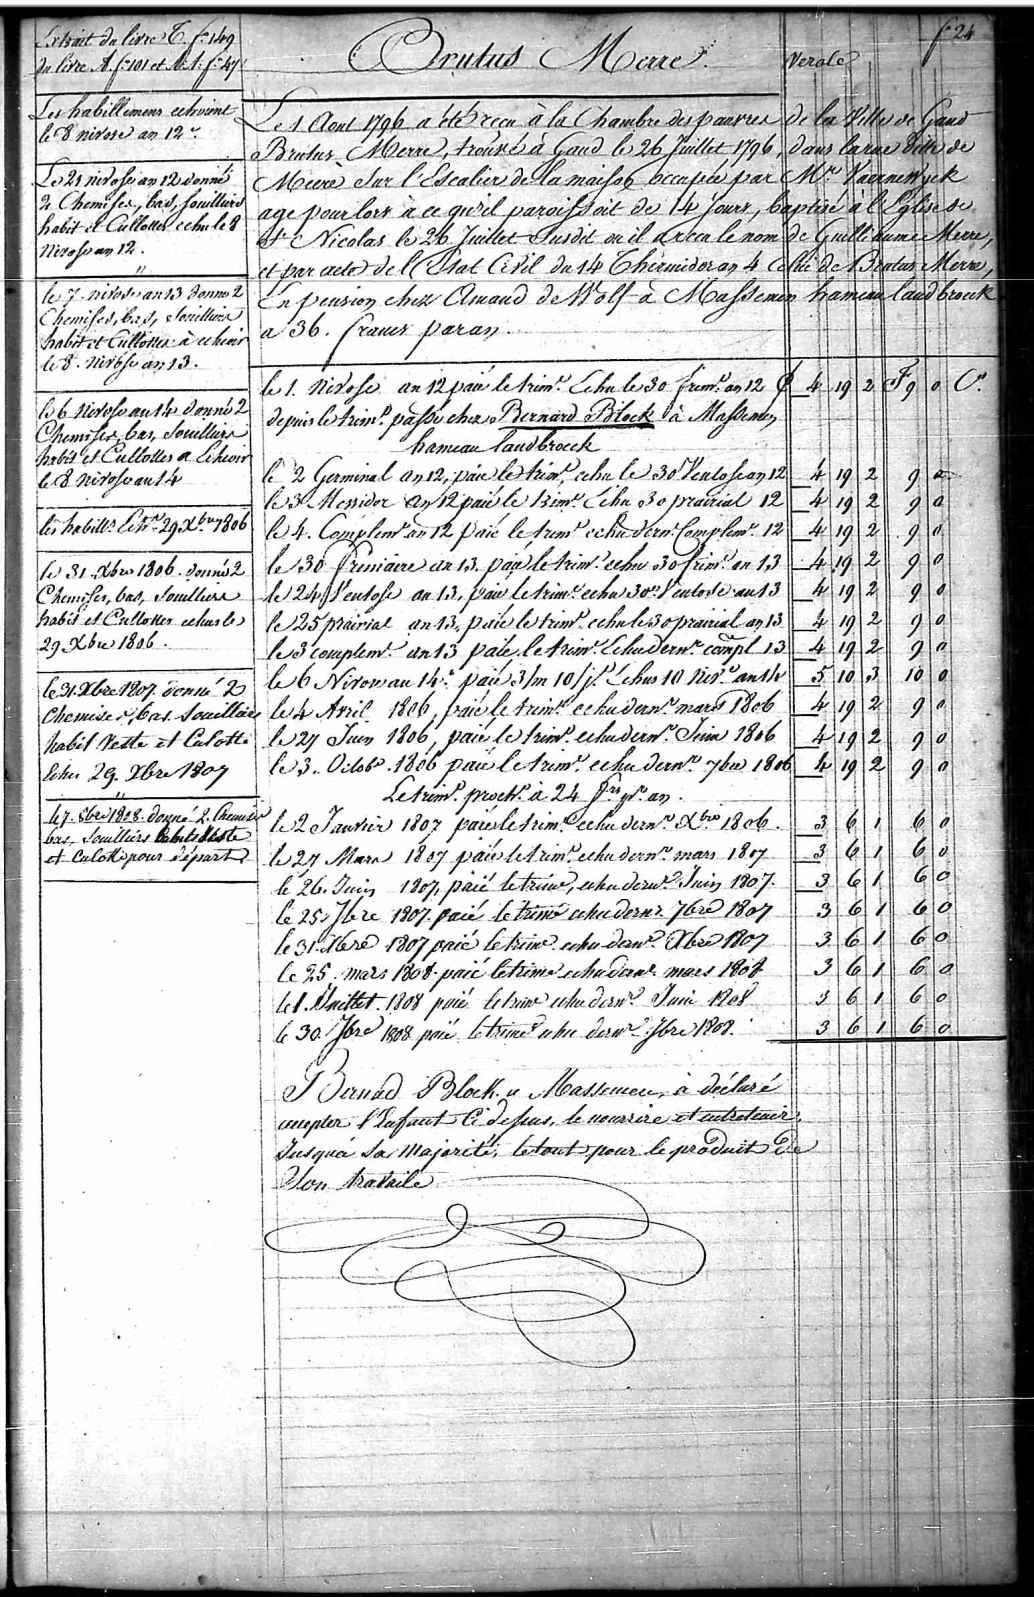 f° 24
Extrait du livre C. f° 149
du livre A f° 101 et N. 1. f° 47
Brutus Merre.
Verole
Les habillemens echoient
le 8 nivose an 12e
Le 21 nivose an 12 donné
2 Chemises, bas, souilliers
habit et Cullottes echu le 8
Nivose an 12.
"
le 7. nivose an 13 donné 2
Chemises, bas, Souilliers
habit et Cullottes à echeoir
le 8. nivose an 13.
le 6 Nivose an 14 donné 2
Chemises, bas, Souilliers
habit et Cullottes a Echeoir
le 8 Nivose an 14
les habillts Echus 29 Xbre 1806
le 31. Xbre 1806. donné 2
Chemises, bas, Souilliers
habit et Cullottes echus le
29 Xbre 1806.
le 31. Xbre 1807. donné 2
Chemises, bas. Souilliers
habit Veste et Culotte
Echu 29. Xbre 1807
"
le 7. 8bre 1808. donné 2. Chemises
bas, Souilliers habit Veste
et Culotte pour départ
Le 1 Aout 1796 a été recu à la Chambre des pauvres de la Ville de Gand
Brutus Merre, trouvé à Gand le 26 Juillet 1796, dans la rue ditte de
Meere sur l'Escalier de la maison occupée par Mr. Vaernewyck
age pour lors à ce qu'il paroissoit de 14 Jours, baptisé à l'Eglise de
St. Nicolas le 26 Juillet Susdit ou il a recu le nom de Guilliaume Merre,
et par acte de l'Etat Civil du 14 Thermidor an 4 celui de Brutus Merre,
En pension chez Amand de Wolf à Massemen hameau landbroeck
a 36. francs par an.
le 1. Nivose an 12 paié le trimre Echu le 30 frimre an 12 4 19 2 F 9 0 Cs
depuis le trimre passé chez Bernard Block à Massemen
hameau landbroeck
le 2 Germinal an 12, paié le trimre echu le 30 Ventose an 12 4 19 2 9 0
le 3 Messidor an 12 paié le trimre Echu 30 prairial 12 4 19 2 9 0
le 4. Complemre an 12 paié le trimre echu dernr Complemre 12 4 19 2 9 0
le 30 frimaire an 13. paié le trimre echu 30 frimre an 13 4 19 2 9 0
le 24 Ventose an 13, paié le trimre echu 30 Ventose an 13 4 19 2 9 0
le 25 prairial an 13, paié le trimre echu le 30 prairial an 13 4 19 2 9 0
le 3 complemre an 13 paié le trimre Echu dernr compl 13 4 19 2 9 0
le 6 Nivose an 14e paié 3/m 10/js Echus 10 Nivre an 14 5 10 3 10 0
le 4 Avril 1806, paié le trimre echu dernr mars 1806 4 19 2 9 0
le 27 Juin 1806, paié le trimre echu dernr Juin 1806 4 19 2 9 0
le 3. Octobr 1806 paié le trimre echu dernr 7bre 1806 4 19 2 9 0
Le trimre proche a 24 frs pr an.
le 2 Janvier 1807 paié le trimre echu dernr Xbre 1806. 3 6 1 6 0
le 27 Mars 1807 paié le trimre echu dernr mars 1807 3 6 1 6 0
le 26. Juin 1807, paié le trimre, echu dernr Juin 1807. 3 6 1 6 0
le 25 7bre 1807. paié le trimre echu dernr 7bre 1807 3 6 1 6 0
le 31. Xbre 1807 paié le trimre echu dernr. Xbre 1807 3 6 1 6 0
le 25. mars 1808. paié le trimre echu dernr mars 1808 3 6 1 6 0
le 1. Juillet. 1808 paié le trimre echu dernr Juin 1808 3 6 1 6 0
le 30. 7bre 1808 paié le trimre echu dernr 7bre 1808. 3 6 1 6 0
Bernard Block a Massemen, à déclaré
accepter l'Enfant Ci dessus, le nourrire et entretenir
Jusqu'à sa Majorité, le tout pour le produit de
Son travaile